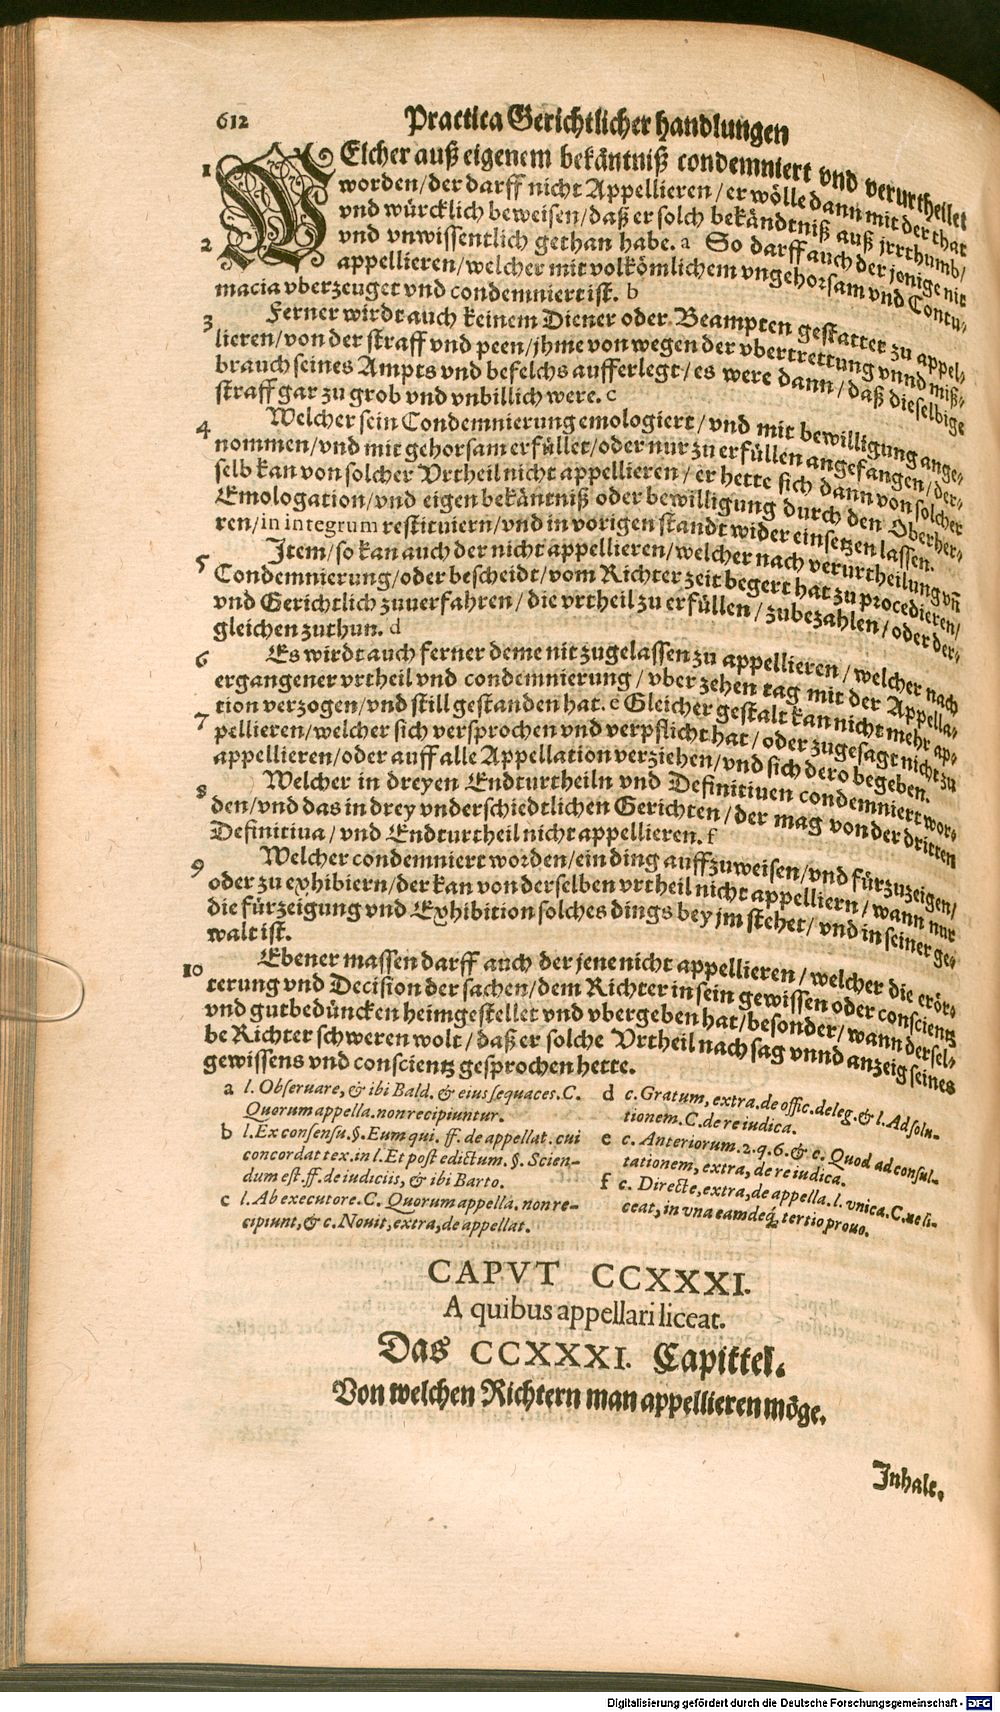 612
Practica Gerichtlicher handlungen
1 WElcher auß eigenem bekäntniß condemniert vnd verurtheilet
worden/der darff nicht Appellieren/er wölle dann mit der that
vnd würcklich beweisen/daß er solch bekändtniß auß jrrthumb/
2 vnd vnwissentlich gethan habe. a So darff auch der jenige nit
appellieren/welcher mit volkömlichem vngehorsam vnd Contu-
macia vberzeuget vnd condemniert ist. b
3 Ferner wirdt auch keinem Diener oder Beampten gestattet zu appel-
lieren/von der straff vnd peen/jhme von wegen der vbertrettung vnnd miß-
brauch seines Ampts vnd befelchs aufferlegt/es were dann/daß dieselbige
straff gar zu grob vnd vnbillich were. c
4 Welcher sein Condemnierung emologiert/vnd mit bewilligung ange-
nommen/vnd mit gehorsam erfüllet/oder nur zu erfüllen angefangen/der-
selb kan von solcher Vrtheil nicht appellieren/er hette sich dann von solcher
Emologation/vnd eigen bekäntniß oder bewilligung durch den Oberher-
ren/in integrum restituiern/vnd in vorigen standt wider einsetzen lassen.
5 Jtem/so kan auch der nicht appellieren/welcher nach verurtheilung vñ
Condemnierung/oder bescheidt/vom Richter zeit begert hat zu procedieren/
vnd Gerichtlich zuuerfahren/die vrtheil zu erfüllen/zubezahlen/oder der-
gleichen zuthun. d
6 Es wirdt auch ferner deme nit zugelassen zu appellieren/welcher nach
ergangener vrtheil vnd condemnierung/vber zehen tag mit der Appella-
tion verzogen/vnd still gestanden hat. e Gleicher gestalt kan nicht mehr ap-
7 pellieren/welcher sich versprochen vnd verpflicht hat/oder zugesagt nicht zu
appellieren/oder auff alle Appellation verziehen/vnd sich dero begeben.
8 Welcher in dreyen Endturtheiln vnd Definitiuen condemniert wor-
den/vnd das in drey vnderschiedtlichen Gerichten/der mag von der dritten
Definitiua/vnd Endturtheil nicht appellieren. f
9 Welcher condemniert worden/ein ding auffzuweisen/vnd fürzuzeigen/
oder zu exhibiern/der kan von derselben vrtheil nicht appelliern/wann nur
die fürzeigung vnd Exhibition solches dings bey jm stehet/vnd in seiner ge-
walt ist.
10 Ebener massen darff auch der jene nicht appellieren/welcher die erör-
terung vnd Decision der sachen/dem Richter in sein gewissen oder conscientz
vnd gutbedüncken heimgestellet vnd vbergeben hat/besonder/wann dersel-
be Richter schweren wolt/daß er solche Vrtheil nach sag vnnd anzeig seines
gewissens vnd conscientz gesprochen hette.
a l. Obseruare, & ibi Bald. & eius sequaces. C.
Quorum appella. non recipiuntur.
b l. Ex consensu. §. Eum qui. ff. de appellat. cui
concordat tex. in l. Et post edictum. §. Scien-
dum est. ff. de iudiciis, & ibi Barto.
c l. Ab executore. C. Quorum appella. non re-
cipiunt, & c. Nouit, extra, de appellat.
d c. Gratum, extra. de offic. deleg. & l. Ad solu-
tionem. C. de re iudica.
e c. Anteriorum. 2. q. 6. & c. Quod ad consul-
tationem, extra, de re iudica.
f c. Directe, extra, de appella. l. vnica. C. ne li-
ceat, in vna eamdeq́; tertio prouo.
CAPVT CCXXXI.
A quibus appellari liceat.
Das CCXXXI. Capittel.
Von welchen Richtern man appellieren möge.
Jnhalt.
Digitalisierung gefördert durch die Deutsche Forschungsgemeinschaft - DFG